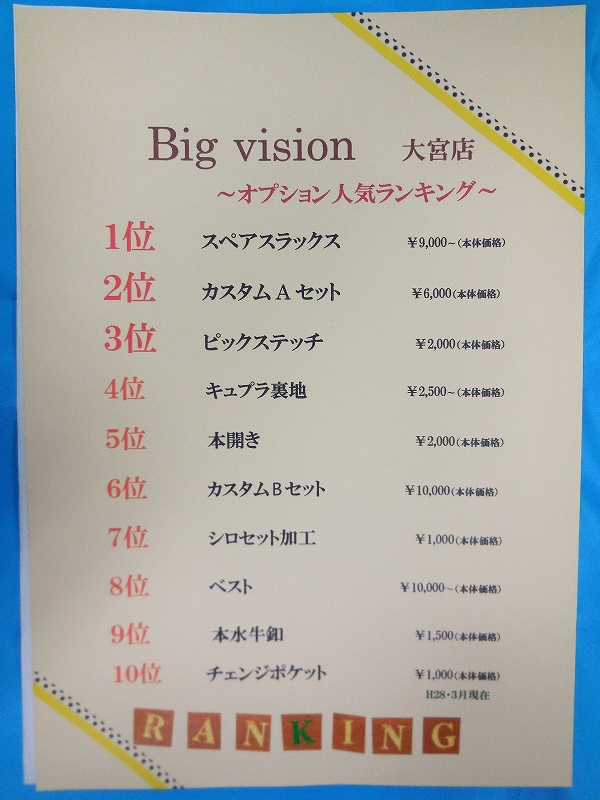 Big vision 大宮店
～オプション人気ランキング～
1位 スペアスラックス ￥9,000~(本体価格)
2位 カスタムAセット ￥6,000(本体価格)
3位 ピックステッチ ￥2,000(本体価格)
4位 キュプラ裏地 ￥2,500~(本体価格)
5位 本開き ￥2,000(本体価格)
6位 カスタムBセット ￥10,000(本体価格)
7位 シロセット加工 ￥1,000(本体価格)
8位 ベスト ￥10,000~(本体価格)
9位 本水牛釦 ￥1,500(本体価格)
10位 チェンジポケット ￥1,000(本体価格)
H28・3月現在
RANKING